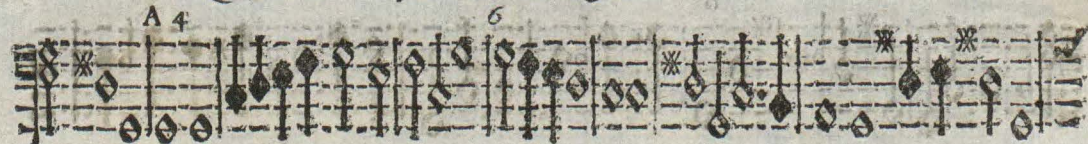 A 4 6